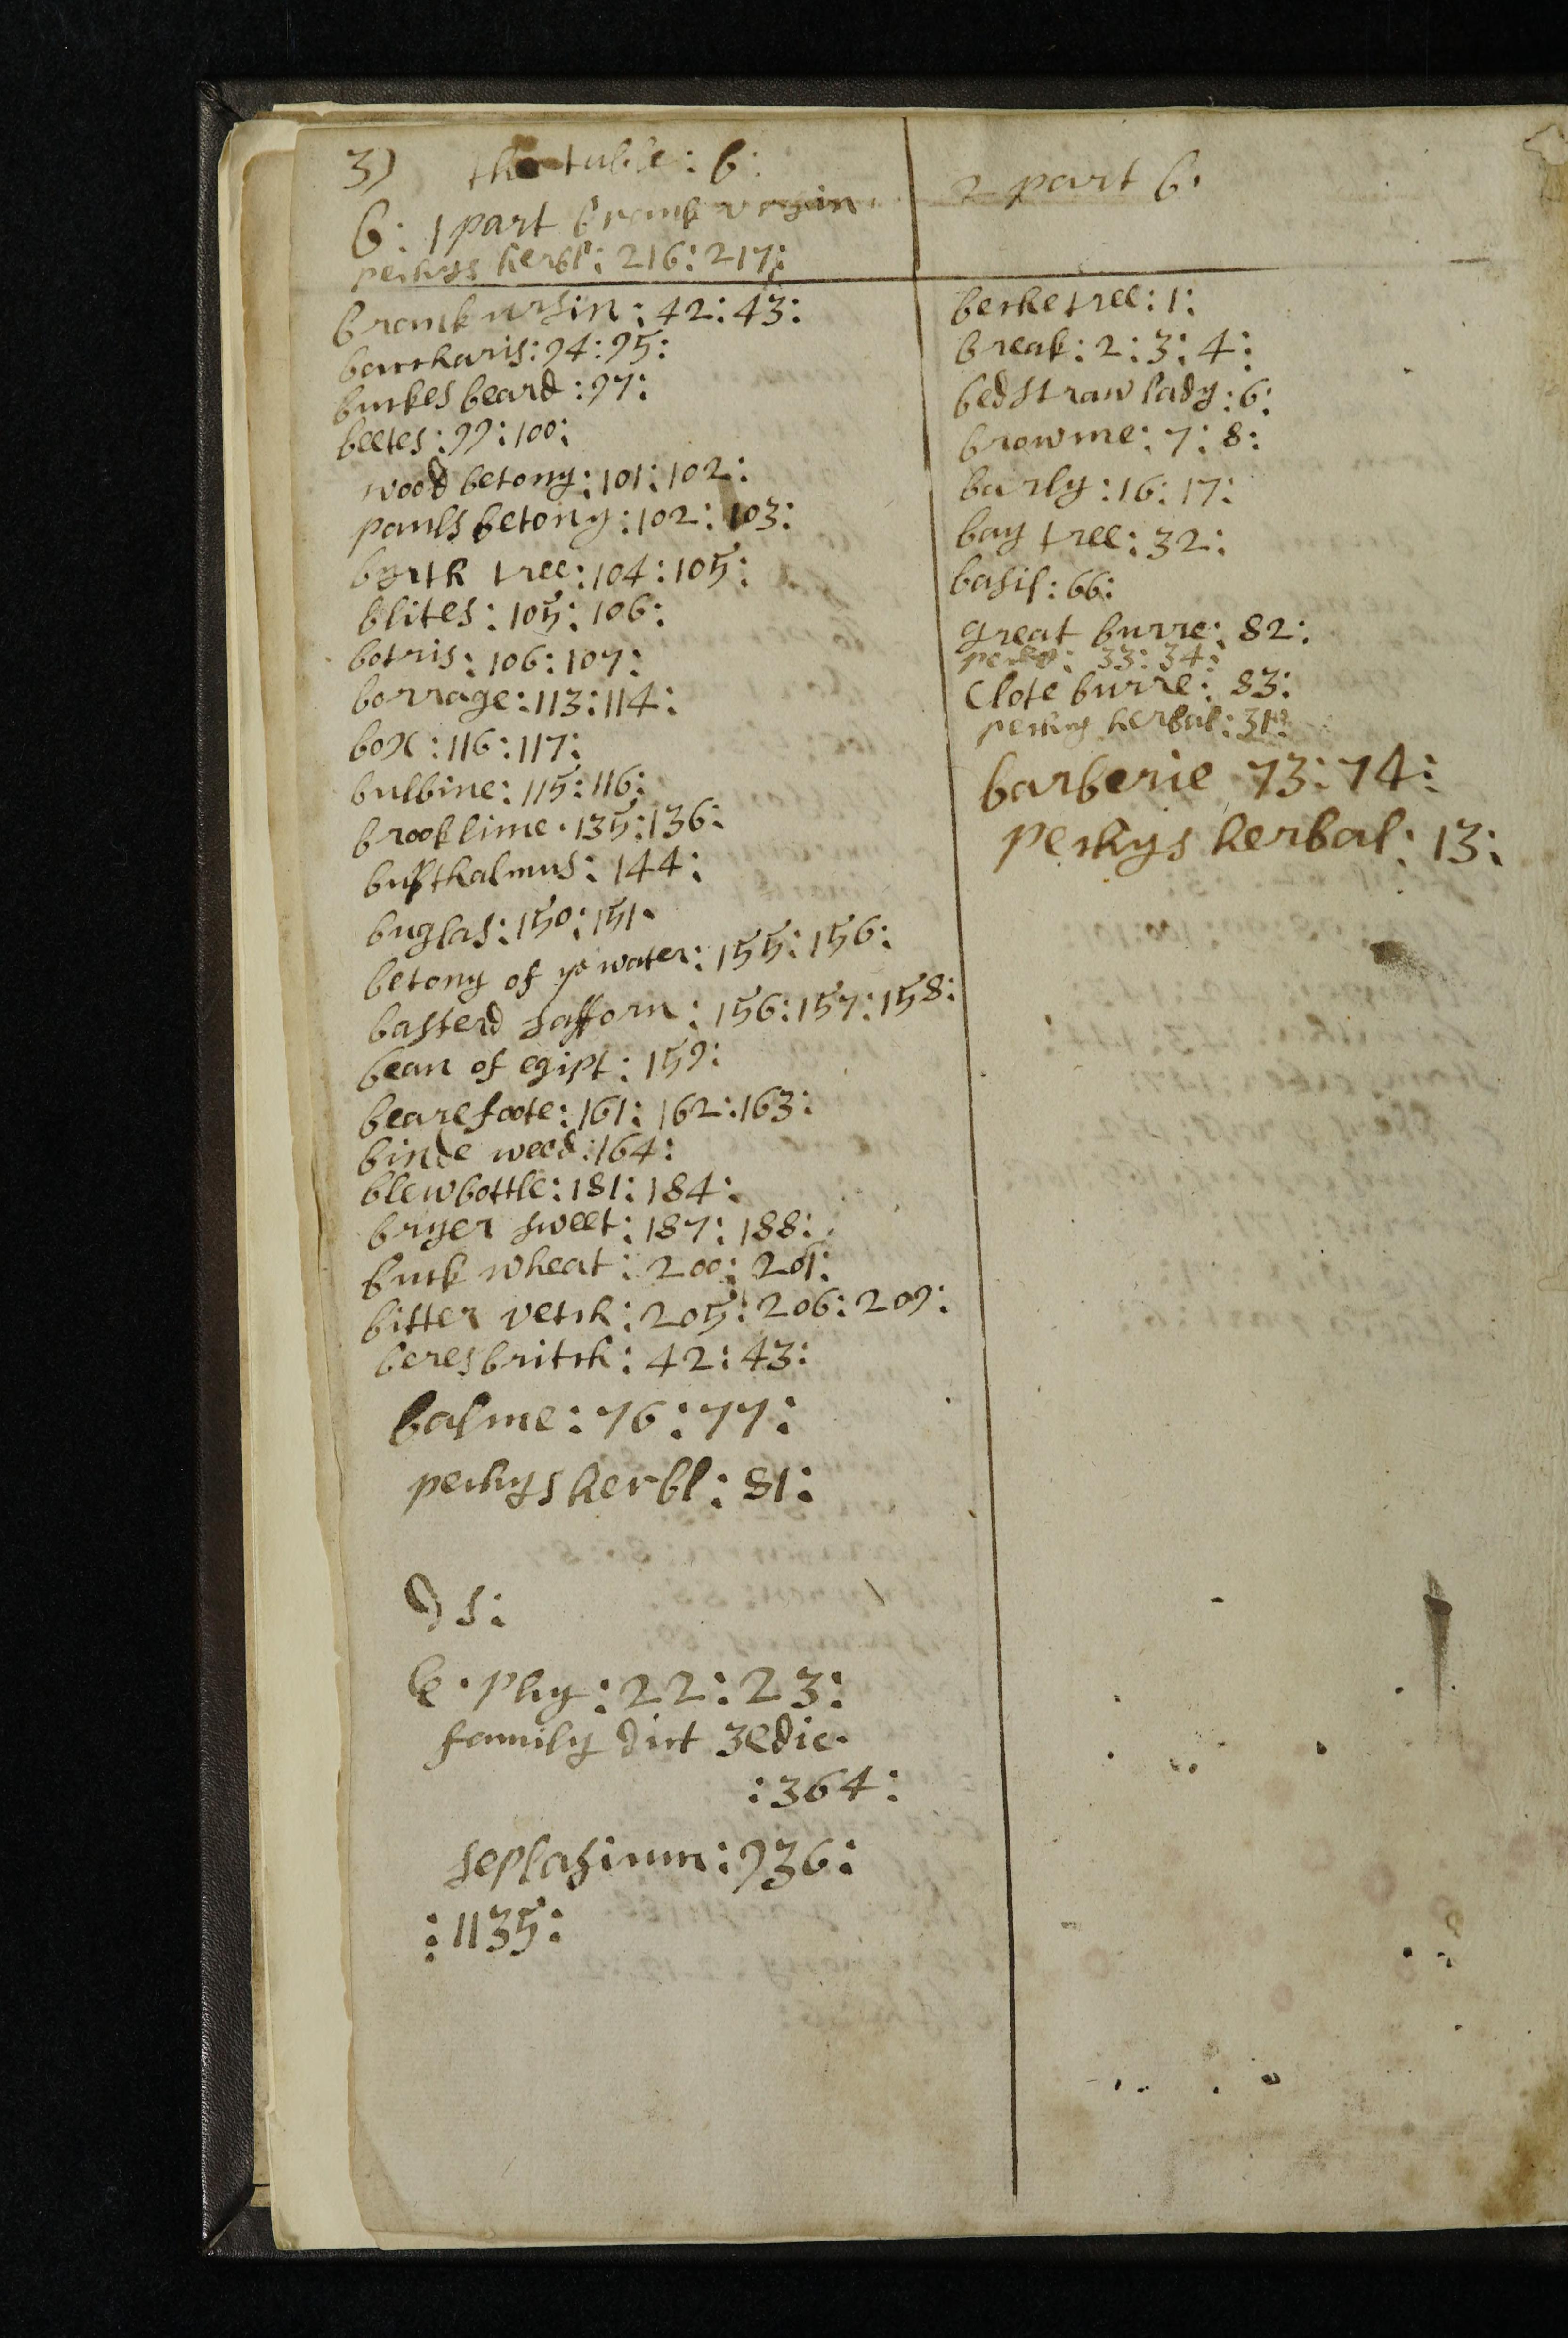 3) the table: b:
b: 1 part brank ursin
pechys herbl: 216: 217:
brank ursin: 42: 43:
baccharis: 94: 95:
buckes beard: 97:
beetes: 99: 100:
wood betony: 101: 102:
pauls betony: 102: 103:
byrch tree: 104: 105:
blites: 105: 106:
botris: 106: 107:
borrage: 113: 114:
box: 116: 117:
bulbine: 115: 116:
brooklime. 135: 136:
bufthalmus: 144:
buglas: 150: 151.
betony of ye water: 155: 156:
basterd safforn: 156: 157: 158:
bean of egipt: 159:
bearefoote: 161: 162: 163:
binde weed: 164:
blewbottle: 181: 184:
bryer sweet: 187: 188:
buck wheat: 200: 201:
bitter vetch: 205: 206: 209:
beresbritch: 42: 43:
balme: 76: 77:
pechys herbl: 81:
ds:
phy: 22: 23:
family dict 3edic.
: 364:
seplasium: 936:
: 1135:
2 part b.
beche tree: 1:
break: 2: 3: 4:
bedstraw lady: 6:
browme: 7: 8:
barly: 16: 17:
bay tree: 32:
basil: 66:
great burre: 82:
33: 34:
Clote burre: 83:
pechys herbal:
barberie 73: 74:
pechys herbal: 13: